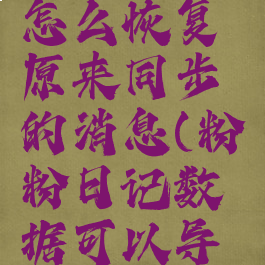 怎么恢复
原来同步
的消息(粉
粉日记数
据可以导